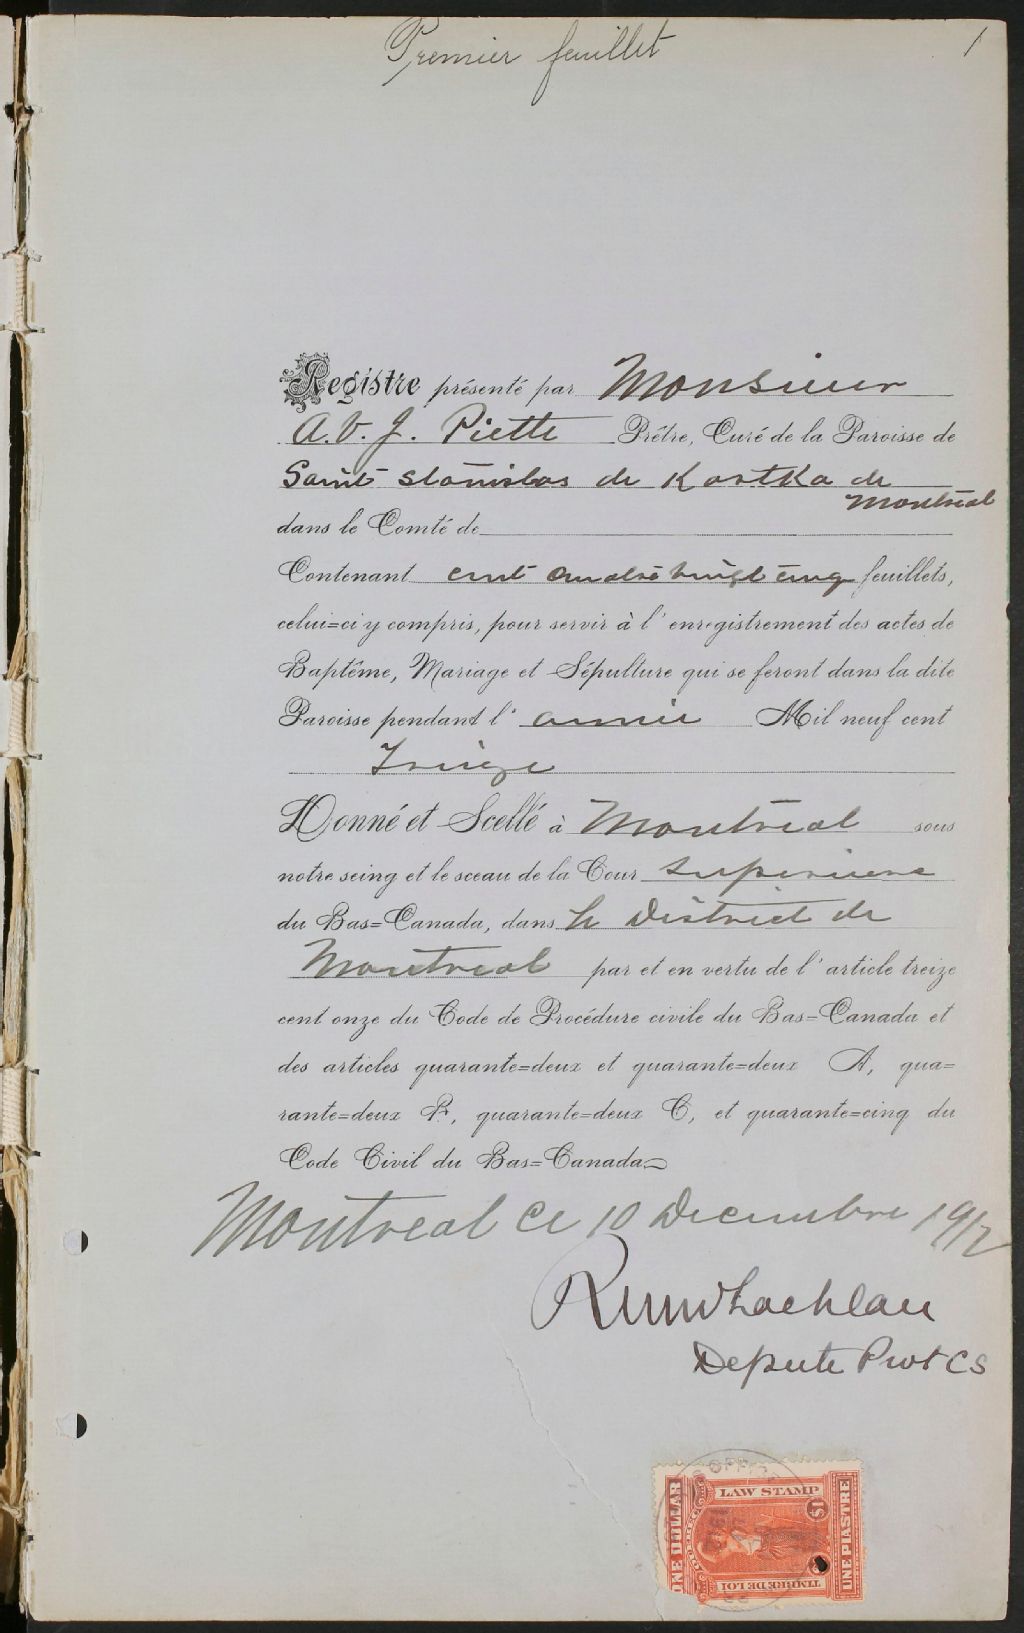 Premier feuillet
1
Registre présenté par Monsieur
A. V. J. Piette Prêtre, Curé de la Paroisse de
Saint Stanislas de Kostka de
Montréal
dans le Comté de
Contenant cent quatre vingt cinq feuillets,
celui=ci y compris, pour servir à l'enregistrement des actes de
Baptême, Mariage et Sépulture qui se feront dans la dite
Paroisse pendant l'année Mil neuf cent
Treize
Donné et Scellé à Montréal sous
notre seing et le sceau de la Cour Superieure
du Bas=Canada, dans le District de
Montreal par et en vertu de l'article treize
cent onze du Code de Procédure civile du Bas=Canada et
des articles quarante=deux et quarante=deux A, qua=
rante=deux B, quarante=deux C, et quarante=cinq du
Code Civil du Bas=Canada
Montreal Ce 10 Decembre 1912
Depute Prot CS
LAW STAMP
ONE DOLLAR
$1
UNE PIASTRE
TIMBRE DE LOI